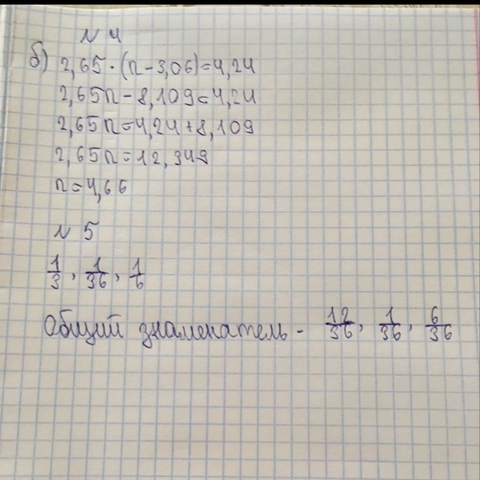 № 4
б) 2,65 · (n - 3,06) = 4,24
2,65n - 8,109 = 4,24
2,65n = 4,24 + 8,109
2,65n = 12,349
n = 4,66
№ 5
1/3, 1/36, 1/6
Общий знаменатель - 12/36, 1/36, 6/36